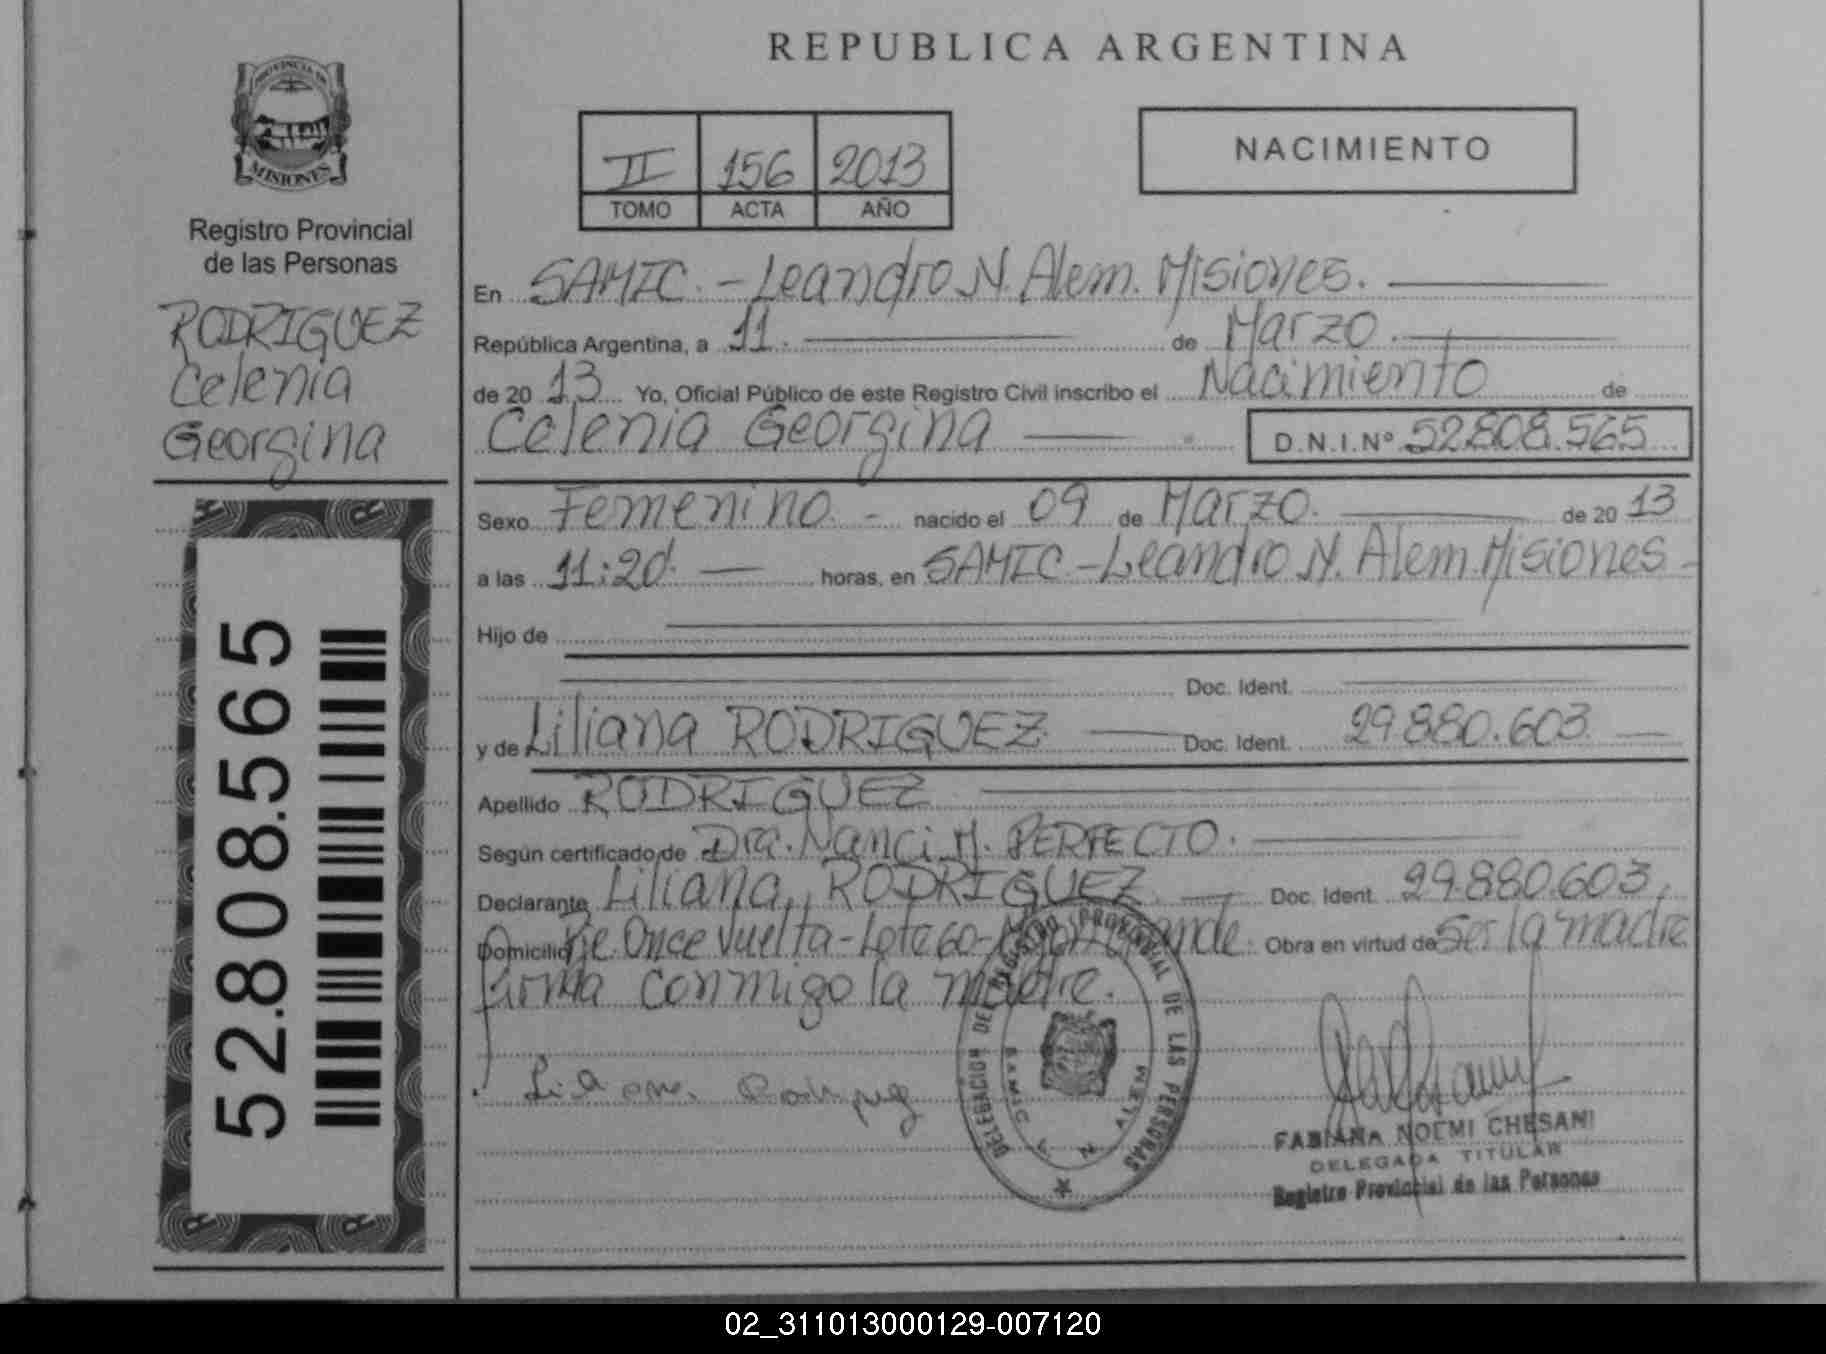 PROVINCIA DE
MISIONES
Registro Provincial
de las Personas
RODRIGUEZ
Celenia
Georgina
52.808.565
REPUBLICA ARGENTINA
II 156 2013
TOMO ACTA AÑO
NACIMIENTO
En SAMIC.-Leandro N. Alem. Misiones.
República Argentina, a 11. de Marzo.
de 20 13 Yo, Oficial Público de este Registro Civil inscribo el Nacimiento de
Celenia Georgina D.N.I.Nº 52.808.565
Sexo Femenino.- nacido el 09 de Marzo. de 20 13
a las 11:20. horas, en SAMIC.-Leandro N. Alem.Misiones-
Hijo de
Doc. Ident.
y de Liliana RODRIGUEZ Doc. Ident. 29.880.603.
Apellido RODRIGUEZ
Según certificado de Dra. Nanci M. PERFECTO.
Declarante Liliana, RODRIGUEZ Doc. Ident. 29.880.603,
Domicilio Pje. Once Vuelta-Lote 60- Obra en virtud de Ser la madre
firma conmigo la madre.
Liliana Rodriguez
DELEGACION DEL REGISTRO PROVINCIAL DE LAS PERSONAS
SAMIC L. N. ALEM
FABIANA NOEMI CHESANI
DELEGADA TITULAR
Registro Provincial de las Personas
02_311013000129-007120